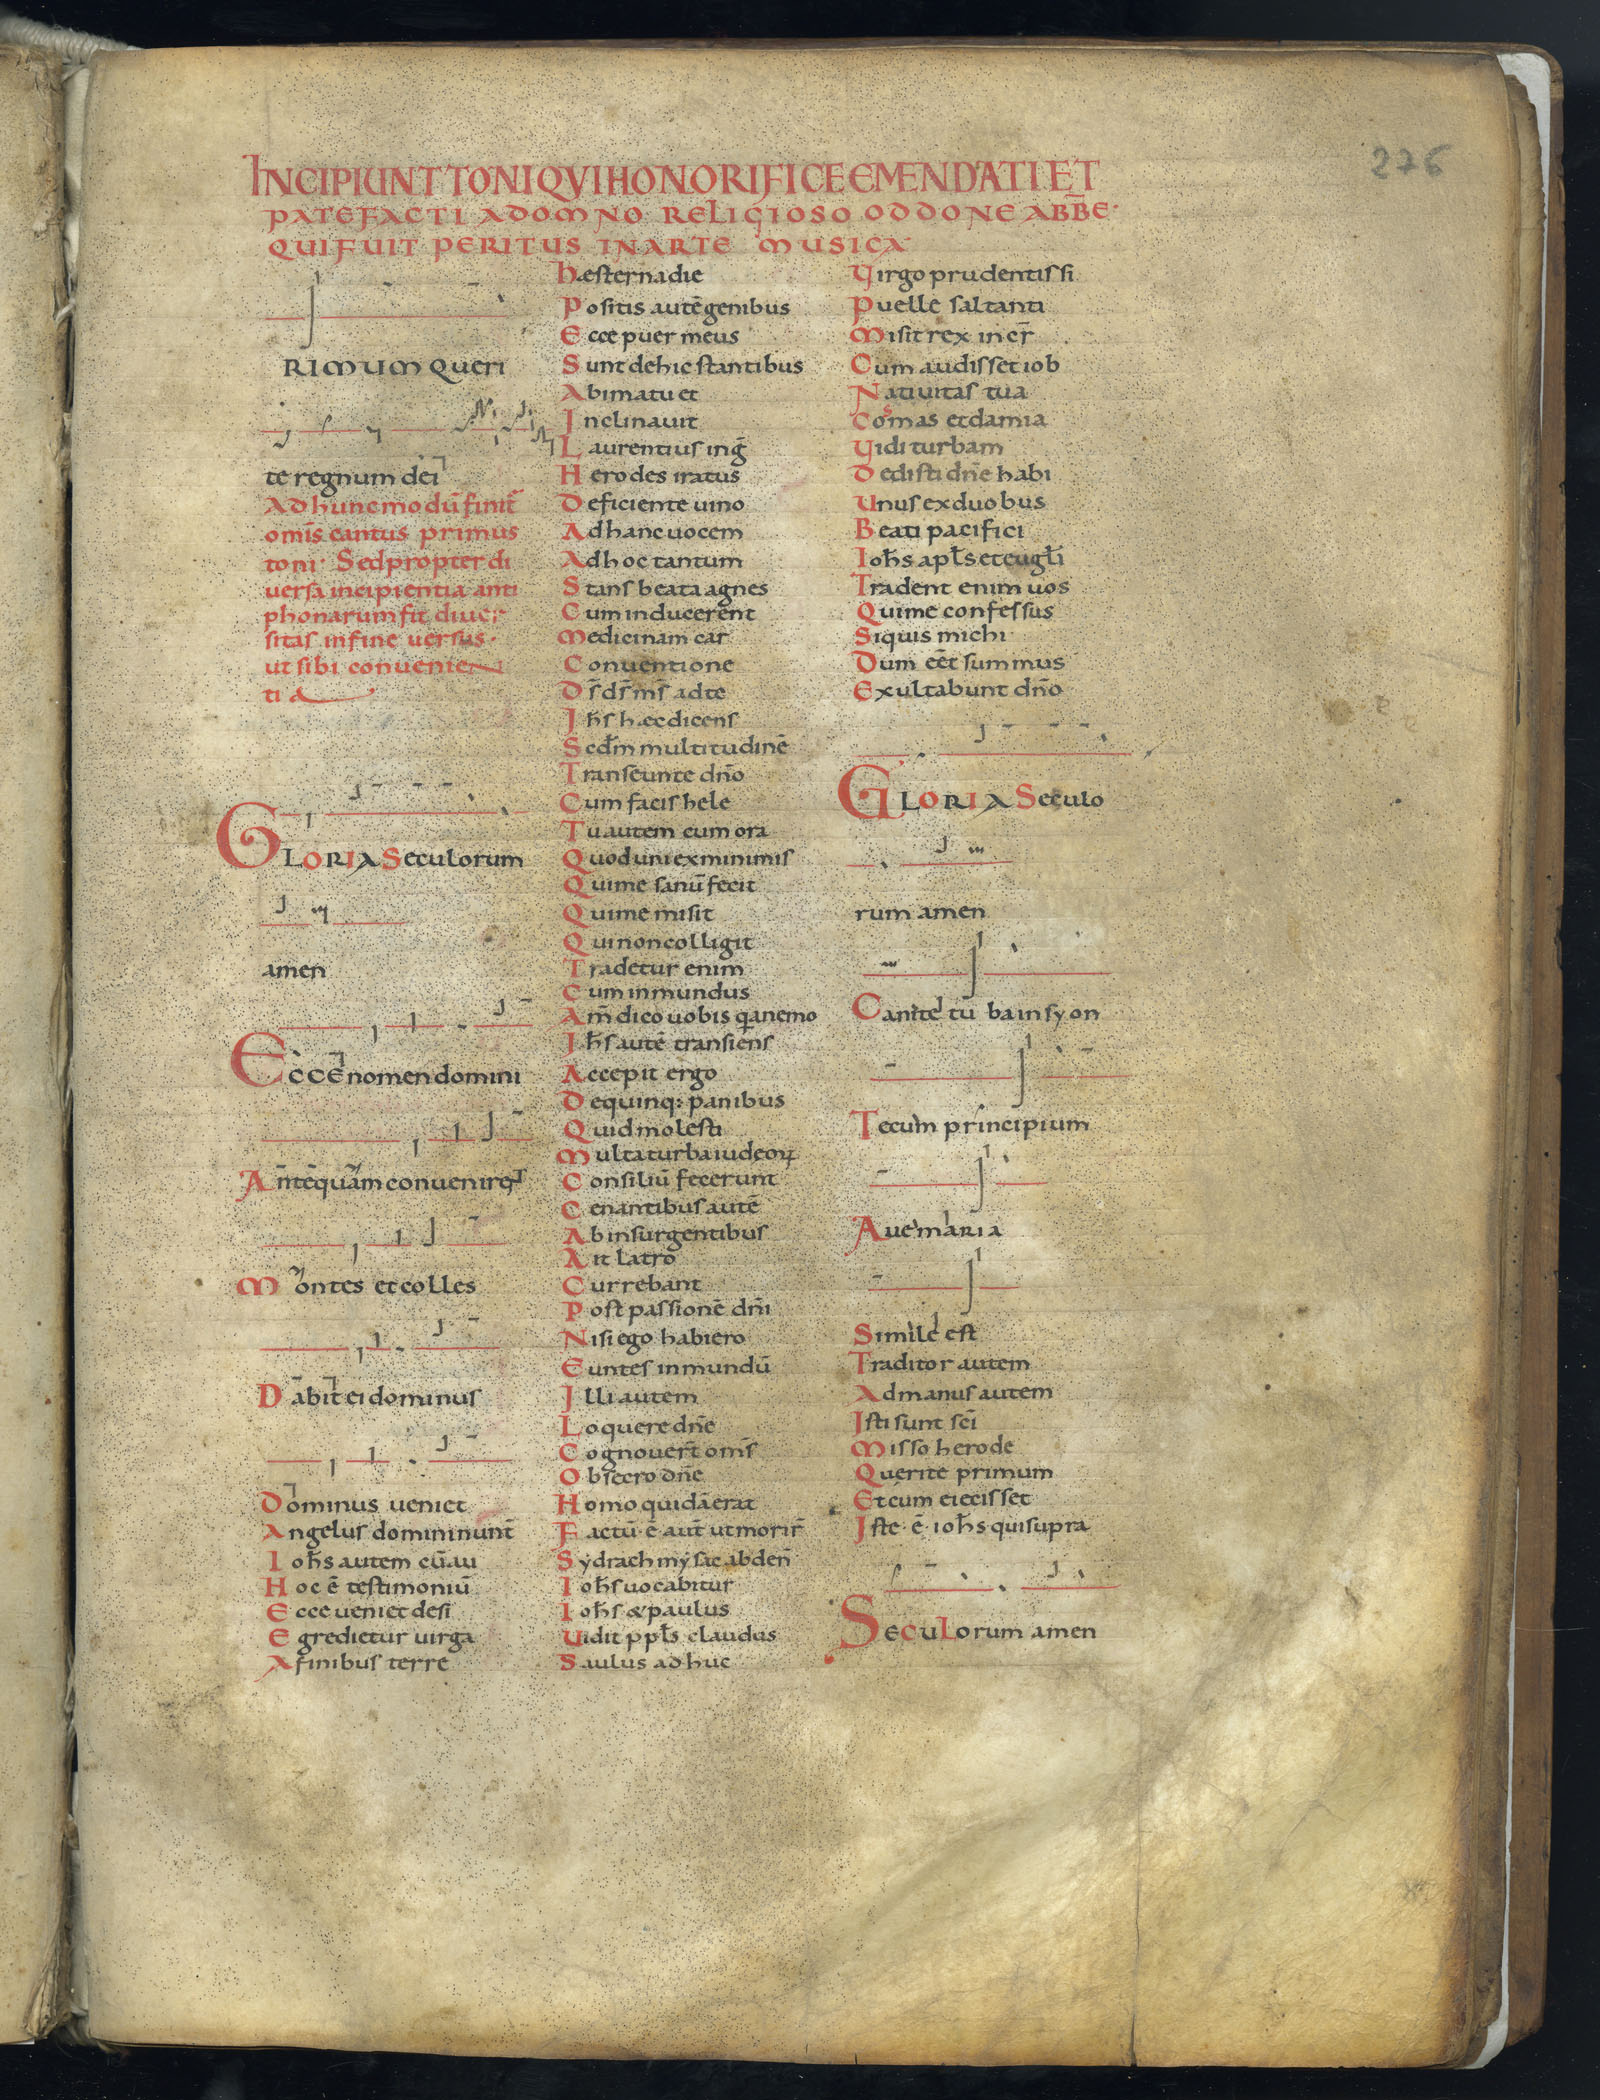 276
INCIPIUNT TONI QVI HONORIFICE EMENDATI ET
PATEFACTI A DOMNO RELIGIOSO ODDONE ABB̄E·
QUI FUIT PERITUS IN ARTE MUSICA
RIMUM Queri
te regnum dei
Ad hunc modū finit̄
om̄s cantus primus
toni· Sed propter di
uersa incipientia anti
phonarum fit diuer
sitas in fine uersus·
ut sibi conuenien
tia
GLORIA Seculorum
amen
Ecce nomen domini
Antequam conuenirēt
Montes et colles
Dabit ei dominus
Dominus ueniet
Angelus domini nunt̄
Ioh̄s autem cū au
Hoc ē testimoniū
Ecce ueniet desi
Egredietur uirga
A finibus terre
Hesterna die
Positis autē genibus
Ecce puer meus
Sunt de hic stantibus
A bimatu et
Inclinauit
Laurentius inḡ
Herodes iratus
Deficiente uino
Ad hanc uocem
Ad hoc tantum
Stans beata agnes
Cum inducerent
Medicinam car
Conuentione
D̄s d̄s m̄s ad te
Ih̄s hęc dicens
Sed̄m multitudinē
Transeunte dn̄o
Cum facis hele
Tu autem cum ora
Quod uni ex minimis
Qui me sanū fecit
Qui me misit
Qui non colligit
Tradetur enim
Cum inmundus
Am̄ dico uobis q̄a nemo
Ih̄s autē transiens
Accepit ergo
De quinq: panibus
Quid molesti
Multa turba iudęoꝝ
Consiliū fecerunt
Cenantibus autē
Ab insurgentibus
Ait latro
Currebant
Post passionē dn̄i
Nisi ego habiero
Euntes in mundū
Illi autem
Loquere dn̄e
Cognouer̄t om̄s
Obsecro dn̄e
Homo quidā erat
Factū· ē aut̄ ut morir̄
Sydrach mysac abden̄
Ioh̄s uocabitur
Ioh̄s & paulus
Uidit ppl̄s claudus
Saulus adhuc
Virgo prudentissi
Puelle saltanti
Misit rex incr̄
Cum audisset iob
Natiuitas tua
Cosmas et damia
Vidi turbam
Dedisti dn̄e habi
Unus ex duobus
Beati pacifici
Ioh̄s apl̄s et eugl̄i
Tradent enim uos
Qui me confessus
Siquis michi
Dum eēt summus
Exultabunt dn̄o
GLORIA Seculo
rum amen
Canite tuba in syon
Tecum principium
Aue maria
Simile est
Traditor autem
Ad manus autem
Isti sunt sc̄i
Misso herode
Querite primum
Et cum eiecisset
Iste· ē· ioh̄s qui supra
Seculorum amen